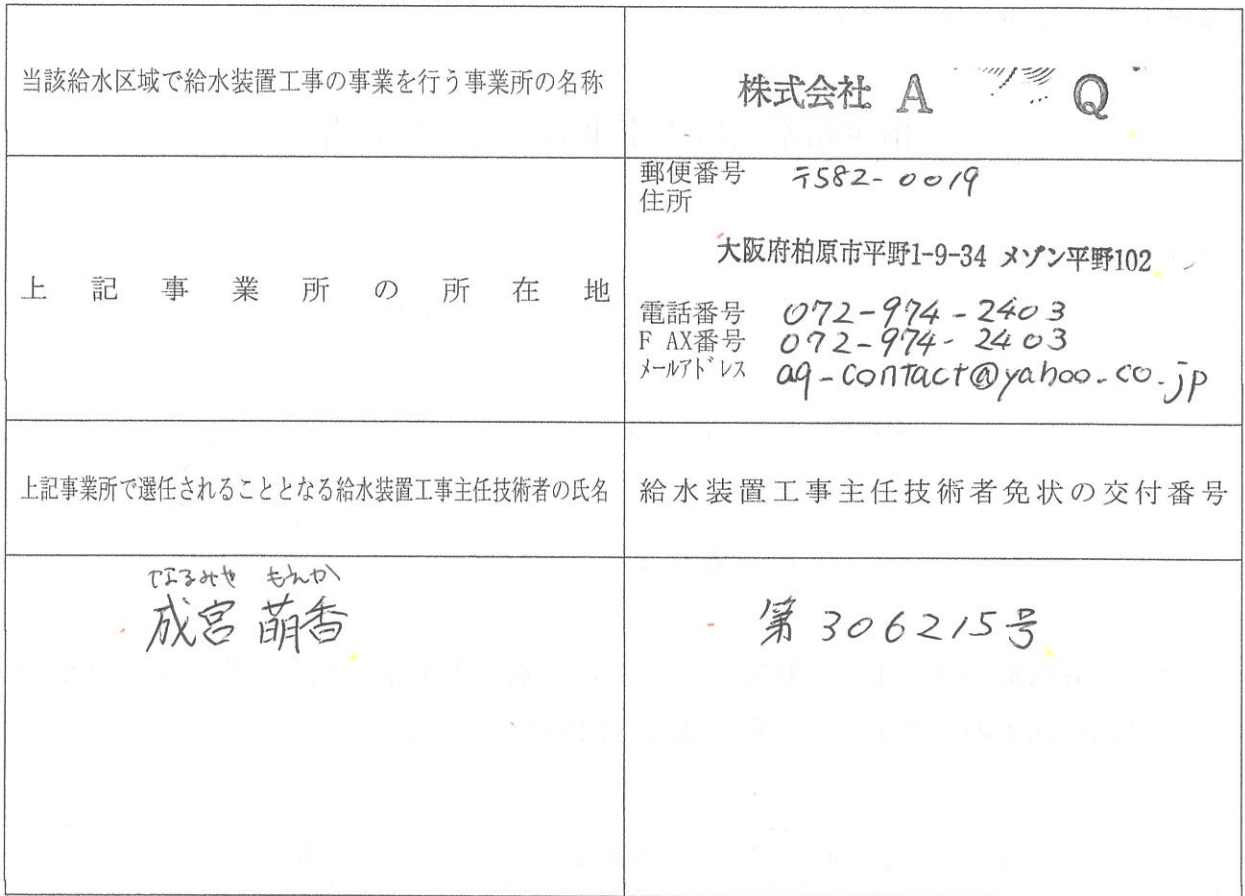 当該給水区域で給水装置工事の事業を行う事業所の名称
株式会社 A Q
上記事業所の所在地
郵便番号 〒582-0019
住所
大阪府柏原市平野1-9-34 メゾン平野102
電話番号 072-974-2403
F AX番号 072-974-2403
メールアドレス aq-contact@yahoo.co.jp
上記事業所で選任されることとなる給水装置工事主任技術者の氏名
給水装置工事主任技術者免状の交付番号
なるみや もえか
成宮 萌香
第306215号